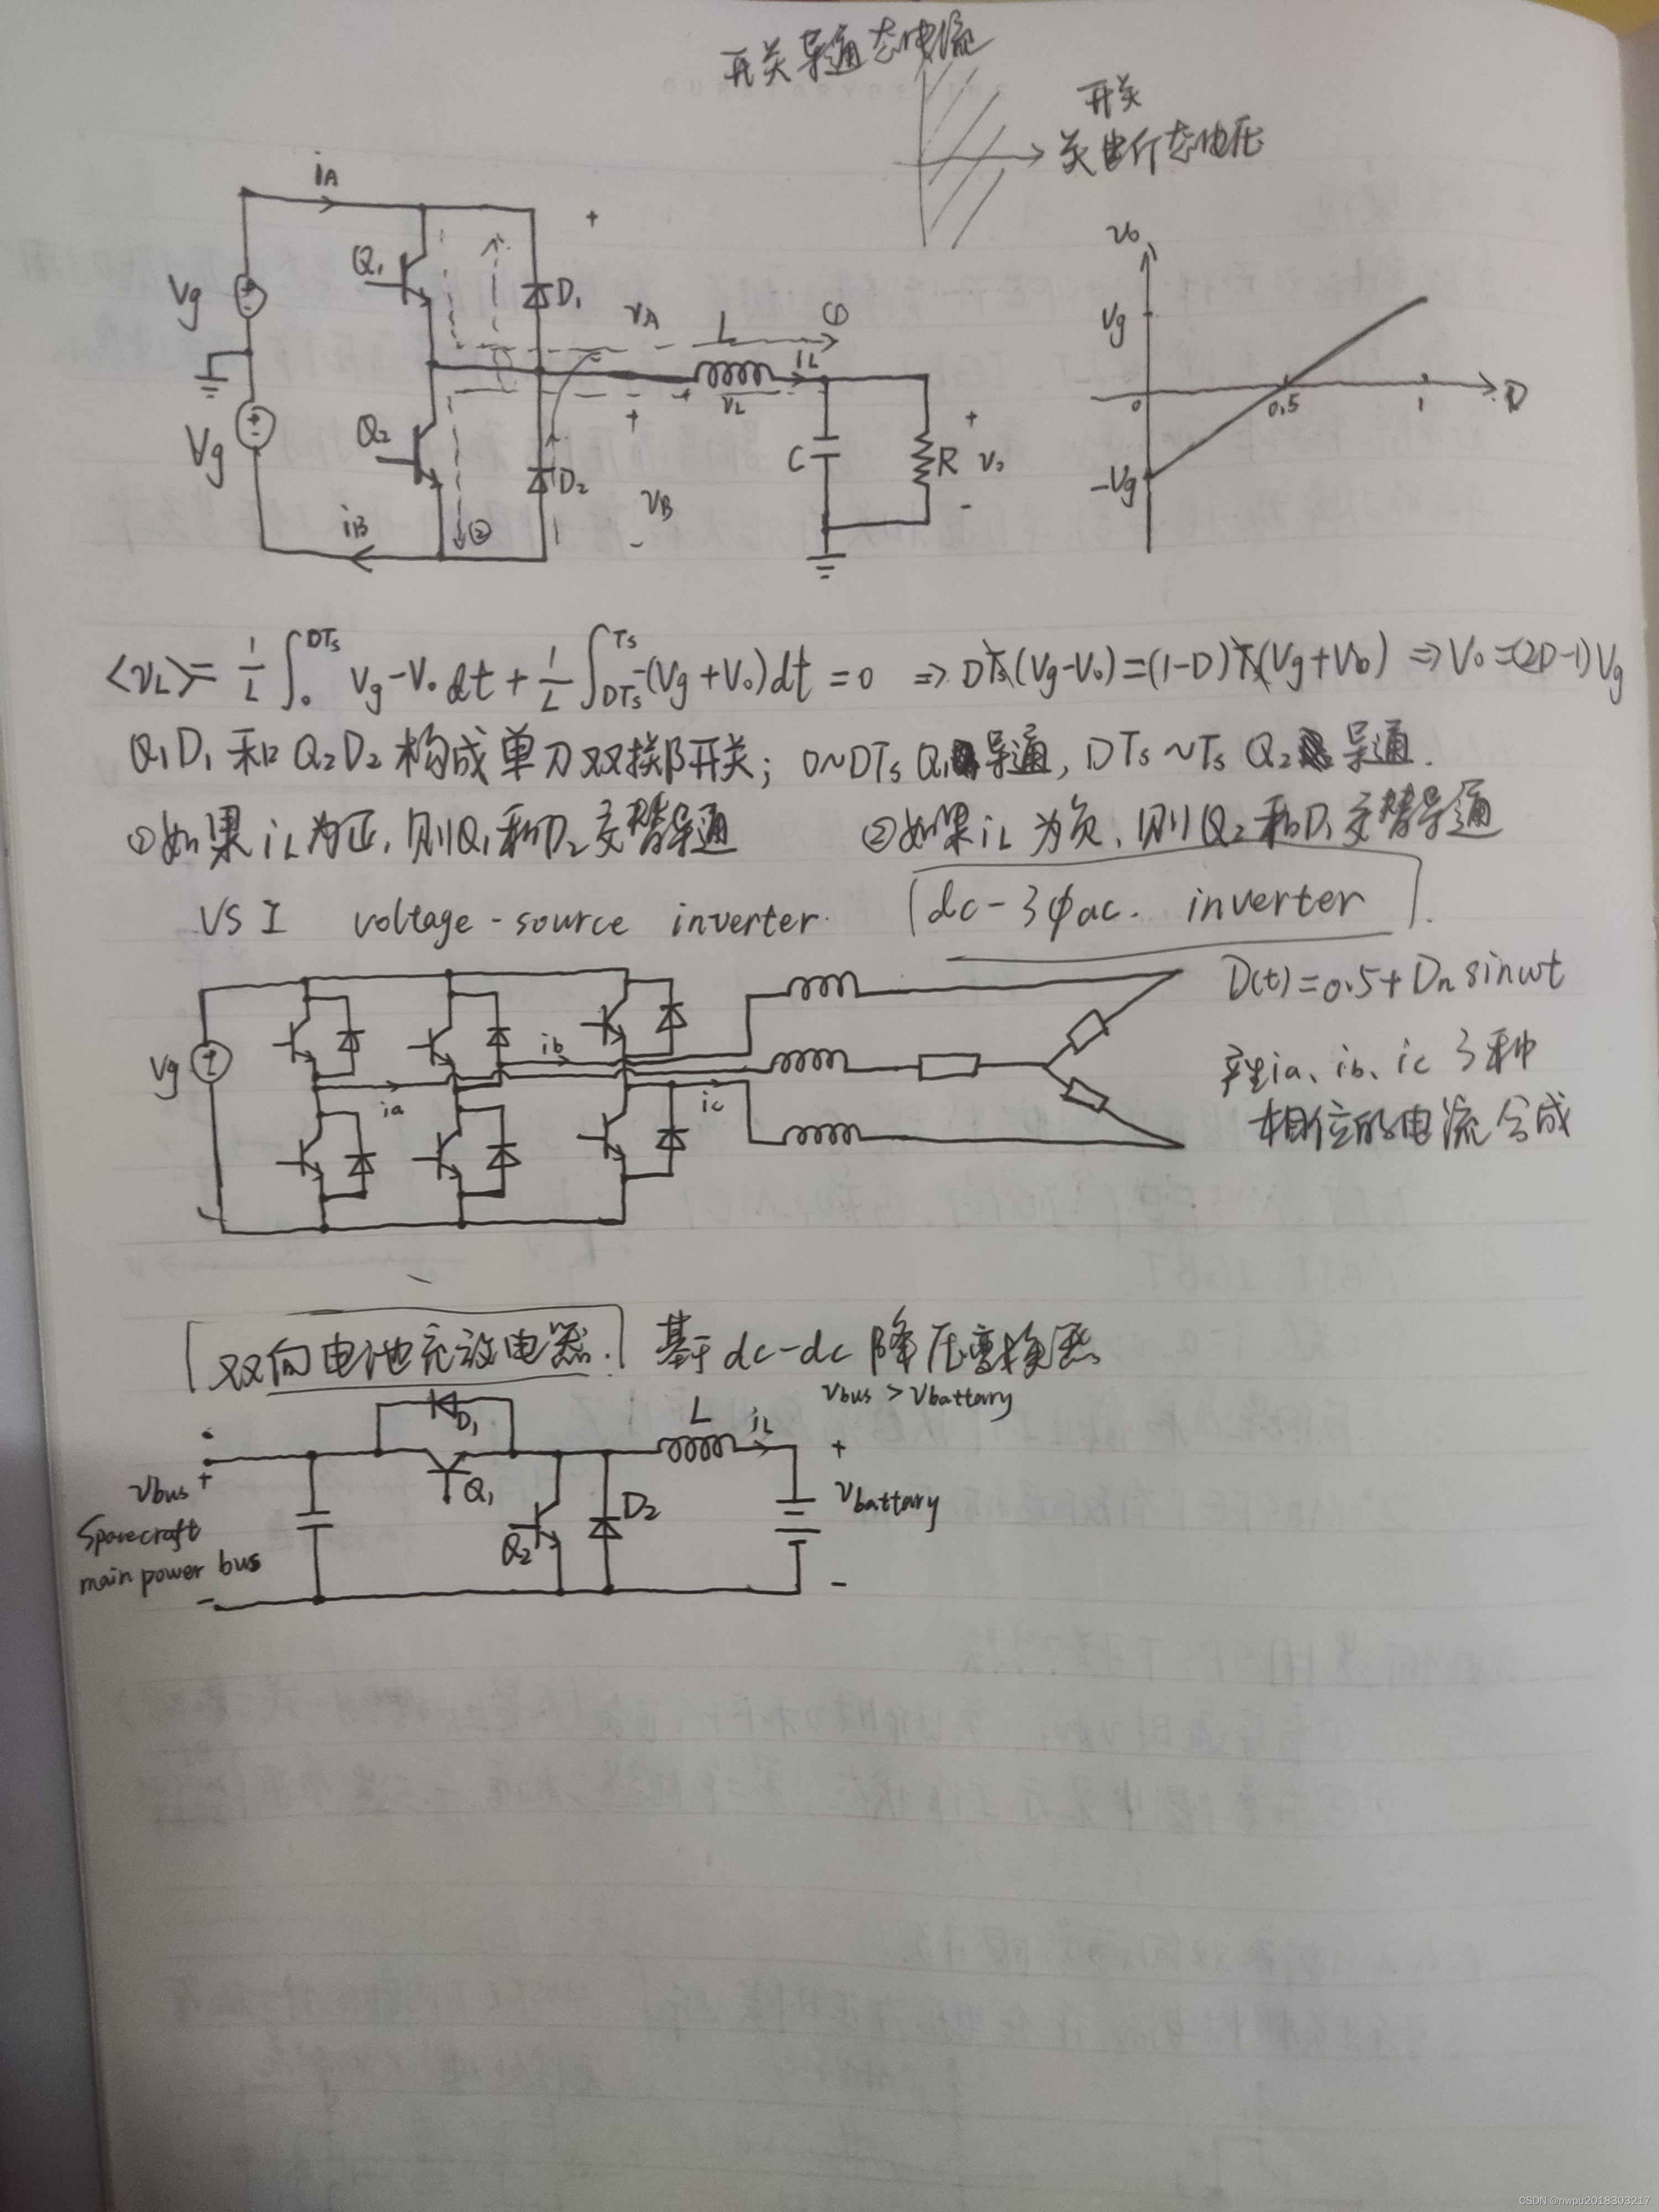 开关导通态电流
开关
关断态电压
iA
+
Q₁
D₁
Vg
vA
L
①
iL
vL
+
+
Vg
Q₂
D₂
C
R
v₀
-
vB
-
iB
②
v₀
Vg
0
0.5
1
D
-Vg
<vL>= 1/L ∫₀^DTs Vg-V₀ dt + 1/L ∫_DTs^Ts -(Vg+V₀)dt = 0 ⇒ DTs(Vg-V₀)=(1-D)Ts(Vg+V₀) ⇒ V₀=(2D-1)Vg
Q₁D₁ 和 Q₂D₂ 构成单刀双掷开关; 0~DTs Q₁导通, DTs~Ts Q₂导通.
①如果 iL为正, 则Q₁和D₂交替导通 ②如果iL为负, 则Q₂和D₁交替导通
VSI voltage-source inverter. dc-3φac. inverter
D(t)=0.5+Dm sinωt
Vg
ia
ib
ic
产生ia、ib、ic 3种
相位的电流合成
双向电池充放电器. 基于dc-dc降压变换器
vbus > vbattary
D₁
L
iL
+
vbus
+
Q₁
Q₂
D₂
vbattary
Sparecraft
main power bus
-
-
CSDN @nwpu2018303217